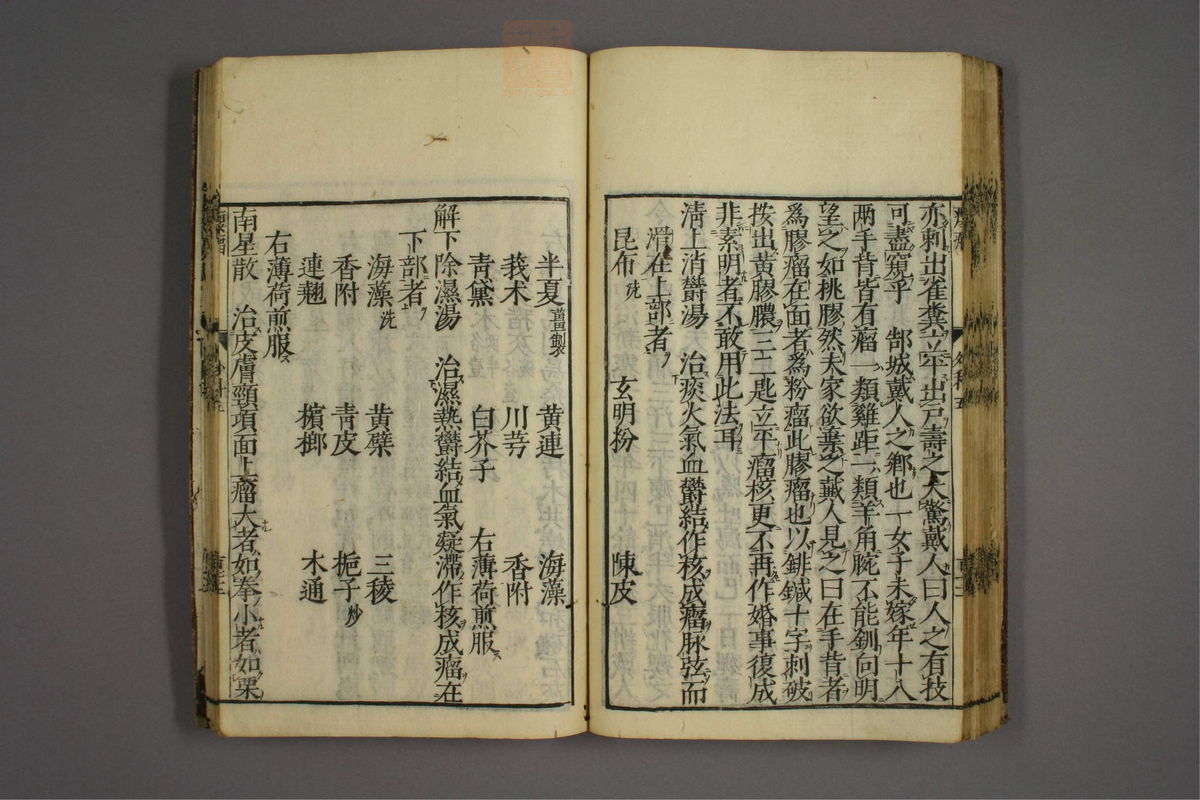 亦刺出雀糞立平出戶壽之大驚戴人曰人之有技
可盡窺乎　郜城戴人之鄉也一女子未嫁年十八
兩手背皆有瘤一類雞距一類羊角腕不能釧向明
望之如桃膠然夫家欲棄之戴人見之曰在手背者
為膠瘤在面者為粉瘤此膠瘤也以䤵鍼十字刺破
按出黃膠膿三二匙立平瘤核更不再作婚事復成
非素明者不敢用此法耳
清上消鬱湯　治痰火氣血鬱結作核成瘤脉弦而
滑在上部者
昆布洗　玄明粉　陳皮
半夏薑製　黃連　海藻
莪术　川芎　香附
青黛　白芥子　右薄荷煎服
解下除濕湯　治濕熱鬱結血氣凝滯作核成瘤在
下部者
海藻洗　黃檗　三稜
香附　青皮　梔子炒
連翹　檳榔　木通
右薄荷煎服
南星散　治皮膚頸項面上瘤大者如拳小者如栗